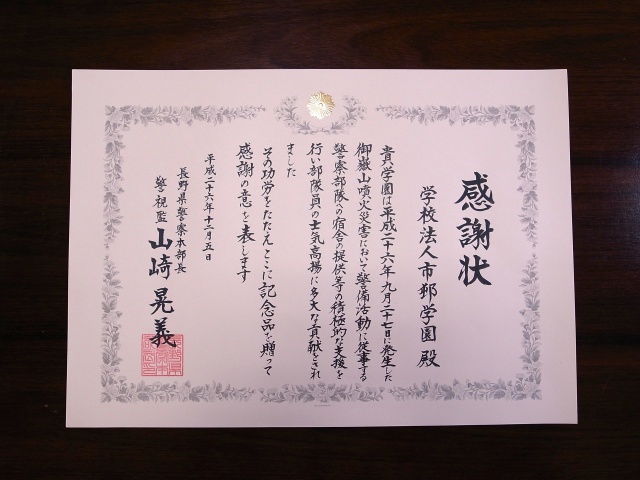 感謝状
学校法人市邨学園 殿
貴学園は平成二十六年九月二十七日に発生した
御嶽山噴火災害において警備活動に従事する
警察部隊への宿舎の提供等の積極的な支援を
行い部隊員の士気高揚に多大な貢献をされ
ました
その功労をたたえここに記念品を贈って
感謝の意を表します
平成二十六年十二月五日
長野県警察本部長
警視監 山崎晃義